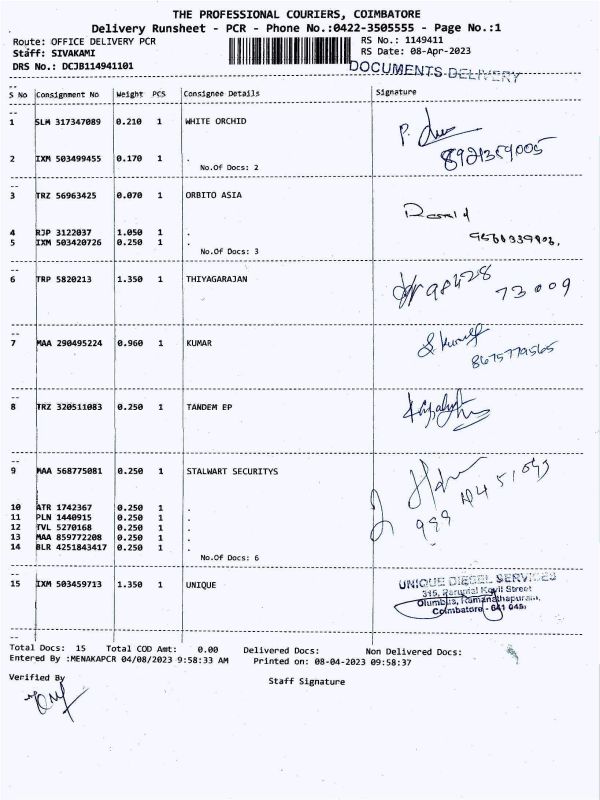 THE PROFESSIONAL COURIERS, COIMBATORE
Delivery Runsheet - PCR - Phone No.:0422-3505555 - Page No.:1
Route: OFFICE DELIVERY PCR RS No.: 1149411
Staff: SIVAKAMI RS Date: 08-Apr-2023
DRS No.: DCJB114941101 DOCUMENTS DELIVERY
S No Consignment No Weight PCS Consignee Details Signature
1 SLM 317347089 0.210 1 WHITE ORCHID
2 IXM 503499455 0.170 1 . 8921359005
No.Of Docs: 2
3 TRZ 56963425 0.070 1 ORBITO ASIA
4 RJP 3122037 1.050 1 .
5 IXM 503420726 0.250 1 .
No.Of Docs: 3
6 TRP 5820213 1.350 1 THIYAGARAJAN 98428
73009
7 MAA 290495224 0.960 1 KUMAR
8675779565
8 TRZ 320511083 0.250 1 TANDEM EP
9 MAA 568775081 0.250 1 STALWART SECURITYS
10 ATR 1742367 0.250 1 .
11 PLN 1440915 0.250 1 .
12 TVL 5270168 0.250 1 .
13 MAA 859772208 0.250 1 .
14 BLR 4251843417 0.250 1 .
No.Of Docs: 6
15 IXM 503459713 1.350 1 UNIQUE UNIQUE DIESEL SERVICES
315, Perumal Kovil Street
Olumbus, Ramanathapuram,
Coimbatore - 641 045.
Total Docs: 15 Total COD Amt: 0.00 Delivered Docs: Non Delivered Docs:
Entered By :MENAKAPCR 04/08/2023 9:58:33 AM Printed on: 08-04-2023 09:58:37
Verified By Staff Signature